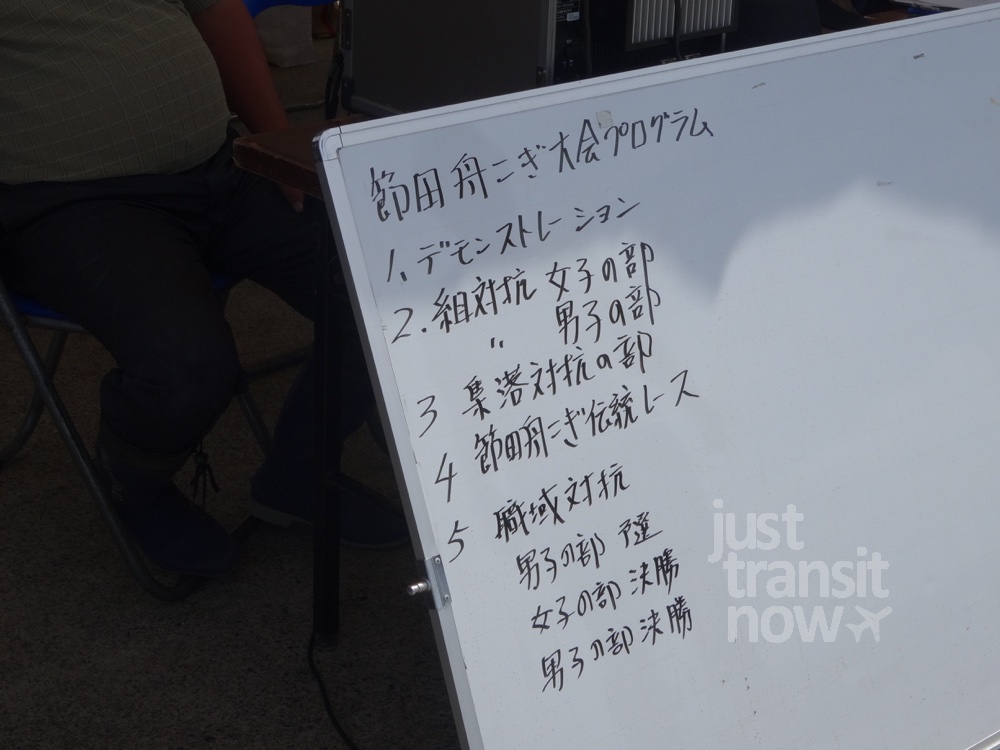 節田舟こぎ大会プログラム
1、デモンストレーション
2.組対抗 女子の部
〃 男子の部
3 集落対抗の部
4 節田舟こぎ伝統レース
5 職域対抗
男子の部 予選
女子の部 決勝
男子の部 決勝
just
transit
now